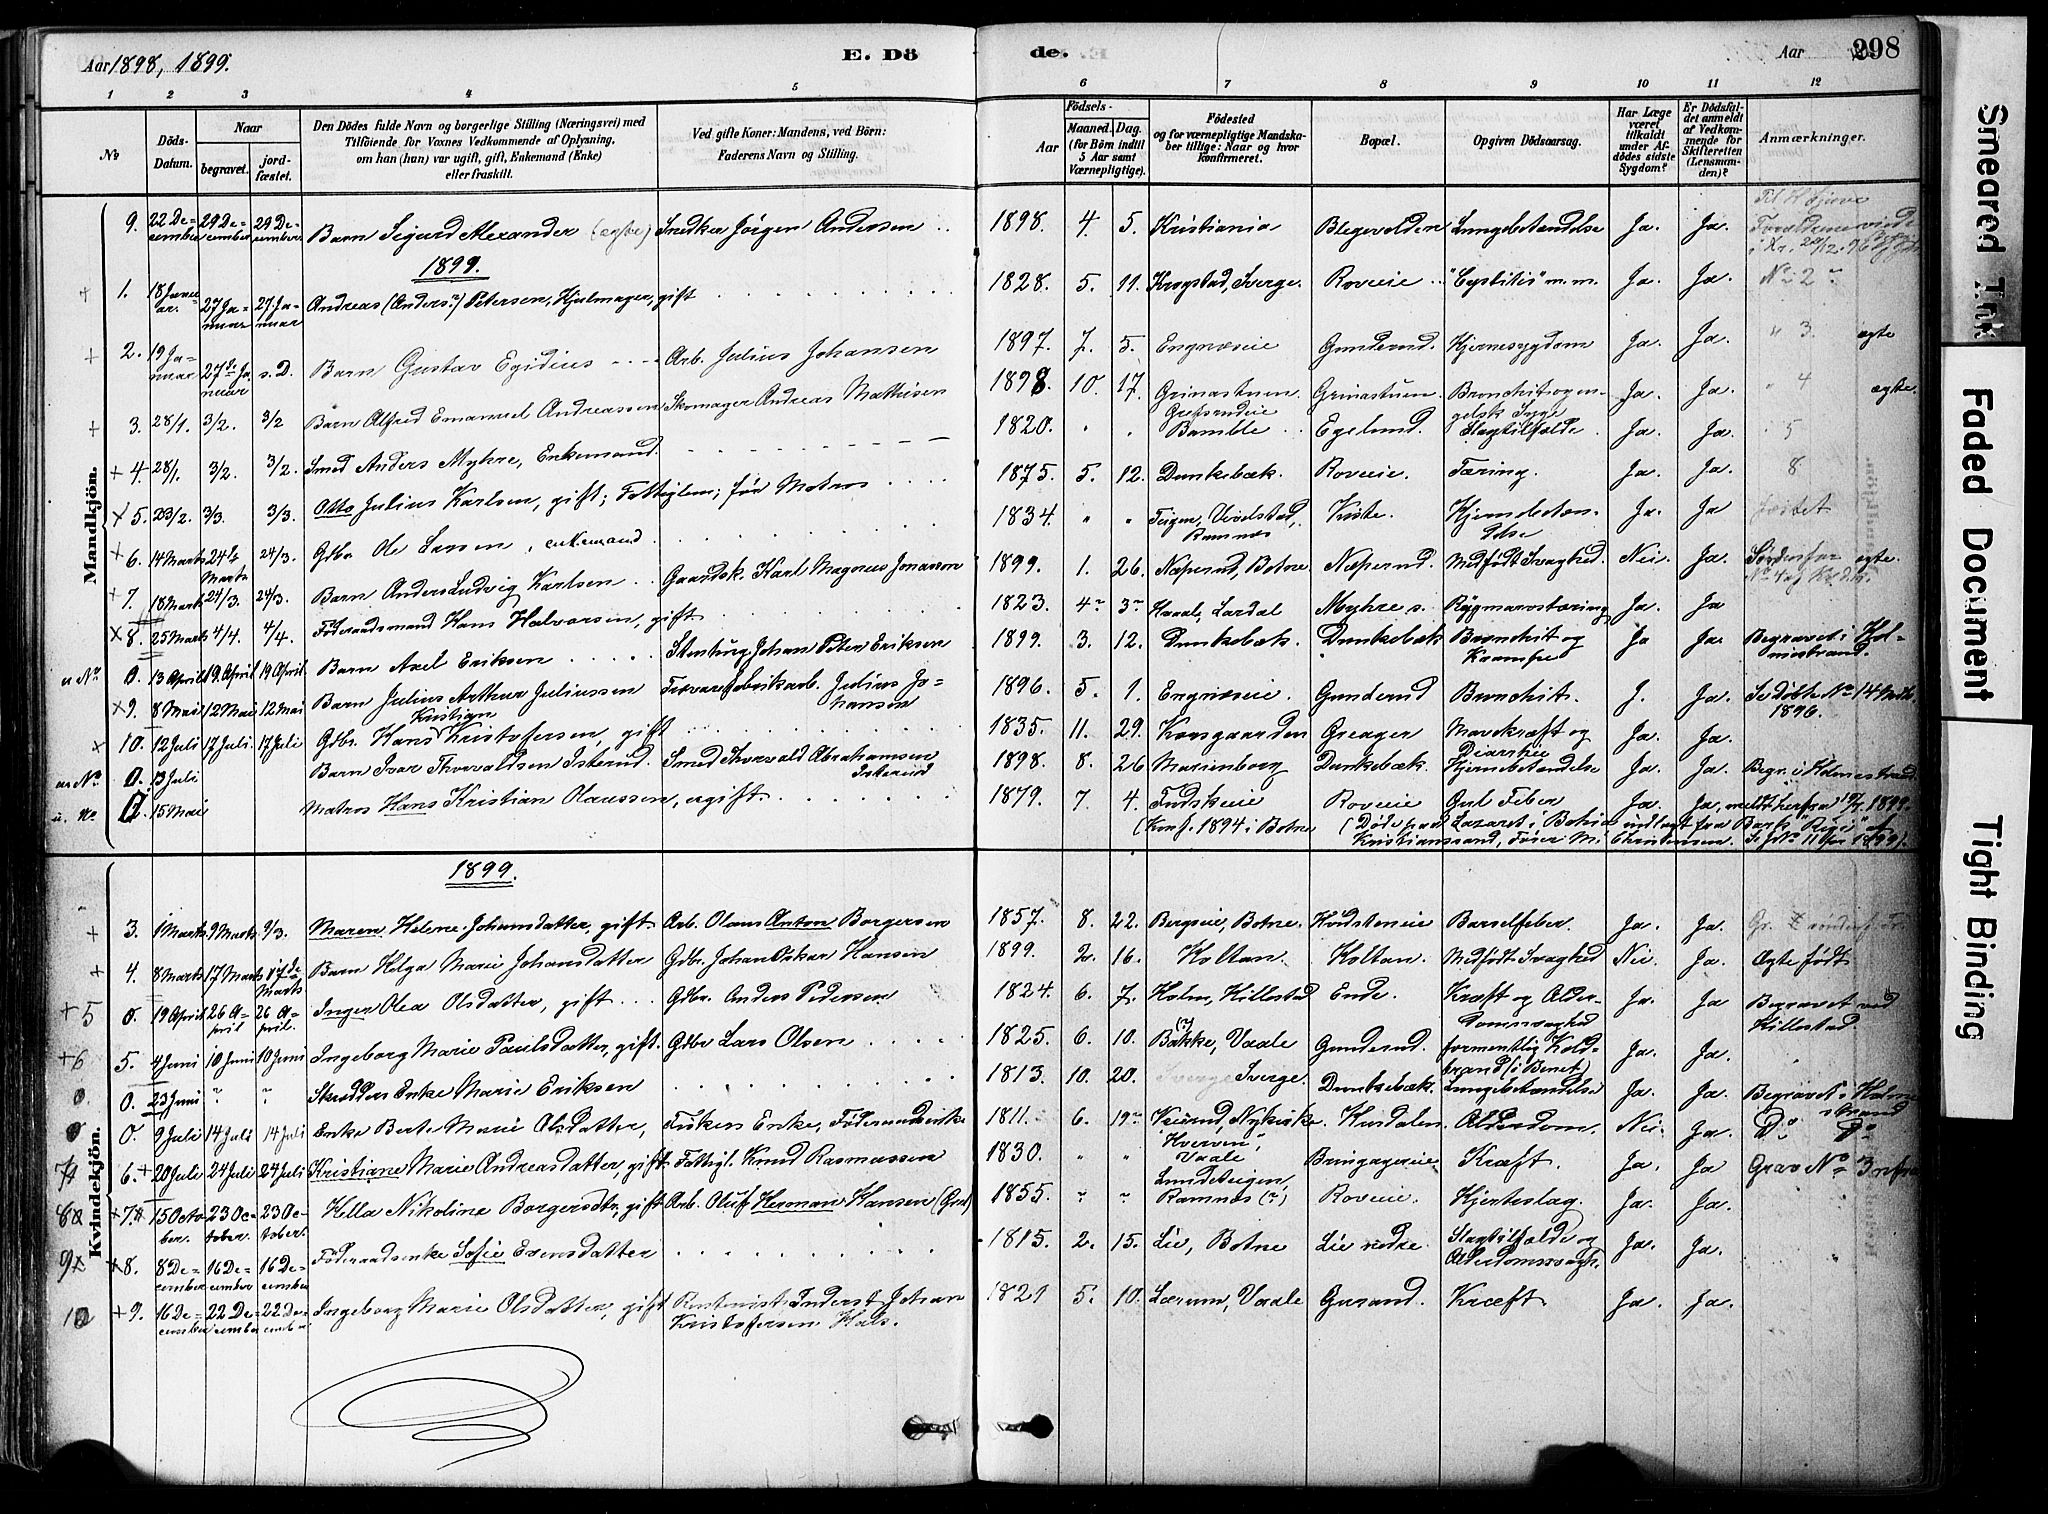 Aar 1898, 1899.
E. Dö
de.
Aar
298
1 2 3 4 5 6 7 8 9 10 11 12
No
Döds-Datum.
Naar
begravet.
jord-fæstet.
Den Dödes fulde Navn og borgerlige Stilling (Næringsvei) med
Tilföiende for Voxnes Vedkommende af Oplysning,
om han (hun) var ugift, gift, Enkemand (Enke)
eller fraskilt.
Ved gifte Koner: Mandens, ved Börn:
Faderens Navn og Stilling.
Aar
Födsels-
Maaned. Dag.
(for Börn indtil
5 Aar samt
Værnepligtige).
Födested
og for værnepligtige Mandska-
ber tillige: Naar og hvor
konfirmeret.
Bopæl.
Opgiven Dödsaarsag.
Har Læge
været
tilkaldt
under Af-
dödes sidste
Sygdom?
Er Dödsfal-
det anmeldt
af Vedkom-
mende for
Skifteretten
(Lensman-
den)?
Anmærkninger.
Mandkjön.
9. 22 December 29 December 29 December Barn Sigurd Alexander (ægte) Snedker Jørgen Andersen 1898. 4. 5. Kristiania Lungebetændelse Ja. Ja.
1899.
1. 18 Januar. 27 Januar 27 Januar Andreas (Anders?) Petersen, Hjulmager, gift 1828. 5. 11. Krogstad, Sverge. Roveie "Cystitis" m.m. Ja. Ja. No 2
2. 19 Januar 27de Januar s.D. Barn Gustav Egidius Arb. Julius Johansen 1897. 7. 5. Engnæseie Gunderud. Hjernesygdom Ja. Ja. " 3. ægte
3. 28/1. 3/2. 3/2 Barn Alfred Emanuel Andreassen Skomager Andreas Mathisen 1898. 10. 17. Grinastuen Grefsrudeie Grinastuen. Bronchit og engelsk Syge Ja. Ja. " 4 ægte.
+ 4. 28/1. 3/2. 3/2. Smed Anders Myhre, Enkemand. 1820. " " Bamble Egelund. Slagtilfælde Ja. Ja. 5
5. 23/2. 3/3. 3/3. Otto Julius Karlsen, gift; Fattiglem; før Matros 1875. 5. 12. Dunkebæk. Roveie. Tæring. Ja. Ja. 8
+ 6. 14 Marts 24de Marts 24/3. Gdbr. Ole Larsen, enkemand 1834. " " Teigen, Vivelstad, Ramnes Kiste. Hjernebetændelse Ja. Ja
+ 7. 18 Marts 24/3. 24/3. Barn Anders Ludvig Karlsen Gaardsk. Karl Magnus Jonasson 1899. 1. 26. Næperud, Botne Næperud. Medfødt Svaghed. Nei. Ja. ægte.
8. 25 Marts 4/4. 4/4. Føderaadsmand Hans Halvorsen, gift 1823. 4 3 Lardal Myhre s. Rygmarvstæring Ja. Ja
u No 0. 13 April 19. April 19 April. Barn Axel Eriksen Stenhug. Johan Peter Eriksen 1899. 3. 12. Dunkebæk. Dunkebæk Bronchit og Krampe Ja Ja. Begravet i Holmestrand.
9. 8 Mai 12 Mai 12 Mai Barn Julius Arthur Juliussen Trævarefabrikarb. Julius Johansen 1896. 5. 1. Engnæseie. Gunderud Bronchit. J. Ja. Se døbte No 14 Mdk. 1896.
10. 12 Juli 17 Juli. 17 Juli Gdbr. Hans Kristian Kristofersen, gift 1835. 11. 29. Korsgaarden Greager Mavekræft og Diarrhée Ja. Ja.
u. No. 0. 13 Juli Barn Ivar Thorvaldsen Isterud. Smed Thorvald Abrahamsen Isterud 1898. 8. 26 Marienborg Dunkebæk. Hjernebetændelse Ja. Ja. Begr. i Holmestrand
u. No 0. 15 Mai Matros Hans Kristian Olaussen, ugift. 1879. 7 4. Tudskeie (Konf. 1894 i Botne Roveie Gul Feber Ja. Ja, meldt herfra 19/7. 1899.
(Døde paa Lazaret i Bahia indlagt fra Bark "Rigi" af
Kristianssand, Fører M. Christensen. Se JNo 11 for 1899).
Kvindekjön.
1899.
3. 1 Marts. 9 Marts. 9/3. Maren Helene Johansdatter, gift. Arb. Olaus Anton Borgersen 1857. 8. 22. Bergseie, Botne. Barselfeber. Ja. Ja.
4. 8 Marts 17 Marts 17de Marts Barn Helga Marie Johansdatter Gdbr. Johan Oskar Hansen 1899. 2. 16. Holtan. Holtan. Medfødt Svaghed Nei. Ja. Ægte født
+ 5 0. 19 April 26 April 26 April. Inger Olea Olsdatter, gift Gdbr. Anders Pedersen 1824. 6. 7. Holm, Hillestad Ende. Kræft og Alderdomssvaghed Ja. Ja Begravet ved Hillestad
+6 5. 4 Juni 10 Juni 10 Juni Ingeborg Marie Paulsdatter, gift. Gdbr Lars Olsen 1825. 6. 10. Bakke, (?) Vaale Gunderud. formentlig Koldbrand (i Benet) Ja. Ja.
0. 0. 23 Juni " " Skrædder Enke Marie Eriksen 1813. 10. 20. Sverge. Dunkebæk. Lungebetændelse Ja. Ja. Begravet i Holmestrand
0. 9 Juli 14 Juli 14 Juli Enke Berte Marie Olsdatter, Fiskers Enke, Føderaadsenke 1811. 6. 19 Nykirke. Kurdalen. Alderdom. Nei. Ja. Do Do
6. + 20 Juli 24 Juli 24 Juli Kristiane Marie Andreasdatter, gift Fattigl. Knud Rasmussen 1830. " " "Hverven", Vaale Bringagereie Kræft. Ja. Ja Grav No 3
+7. 15 October. 23 October. 23 October. Hella Nikoline Borgersdtr., gift Arb. Oluf Herman Hansen 1855. " " Lundeteigen, Ramnes (?) Roveie. Hjerteslag. Ja. Ja.
9 +8. 8 December 16 December 16 December Føderaadsenke Sofie Evensdatter 1815. 2. 15. Lie, Botne Lie nedre Slagtilfælde og Alderdomssvagh. Ja. Ja.
10 +9. 16 December 22 December 22 December Ingeborg Marie Olsdatter, gift Rentenist Anders Johan Kristofersen Hals. 1821 5. 10. Lærum, Vaale Gusand. Kræft. Ja. Ja.
Smeared Ink
Faded Document
Tight Binding